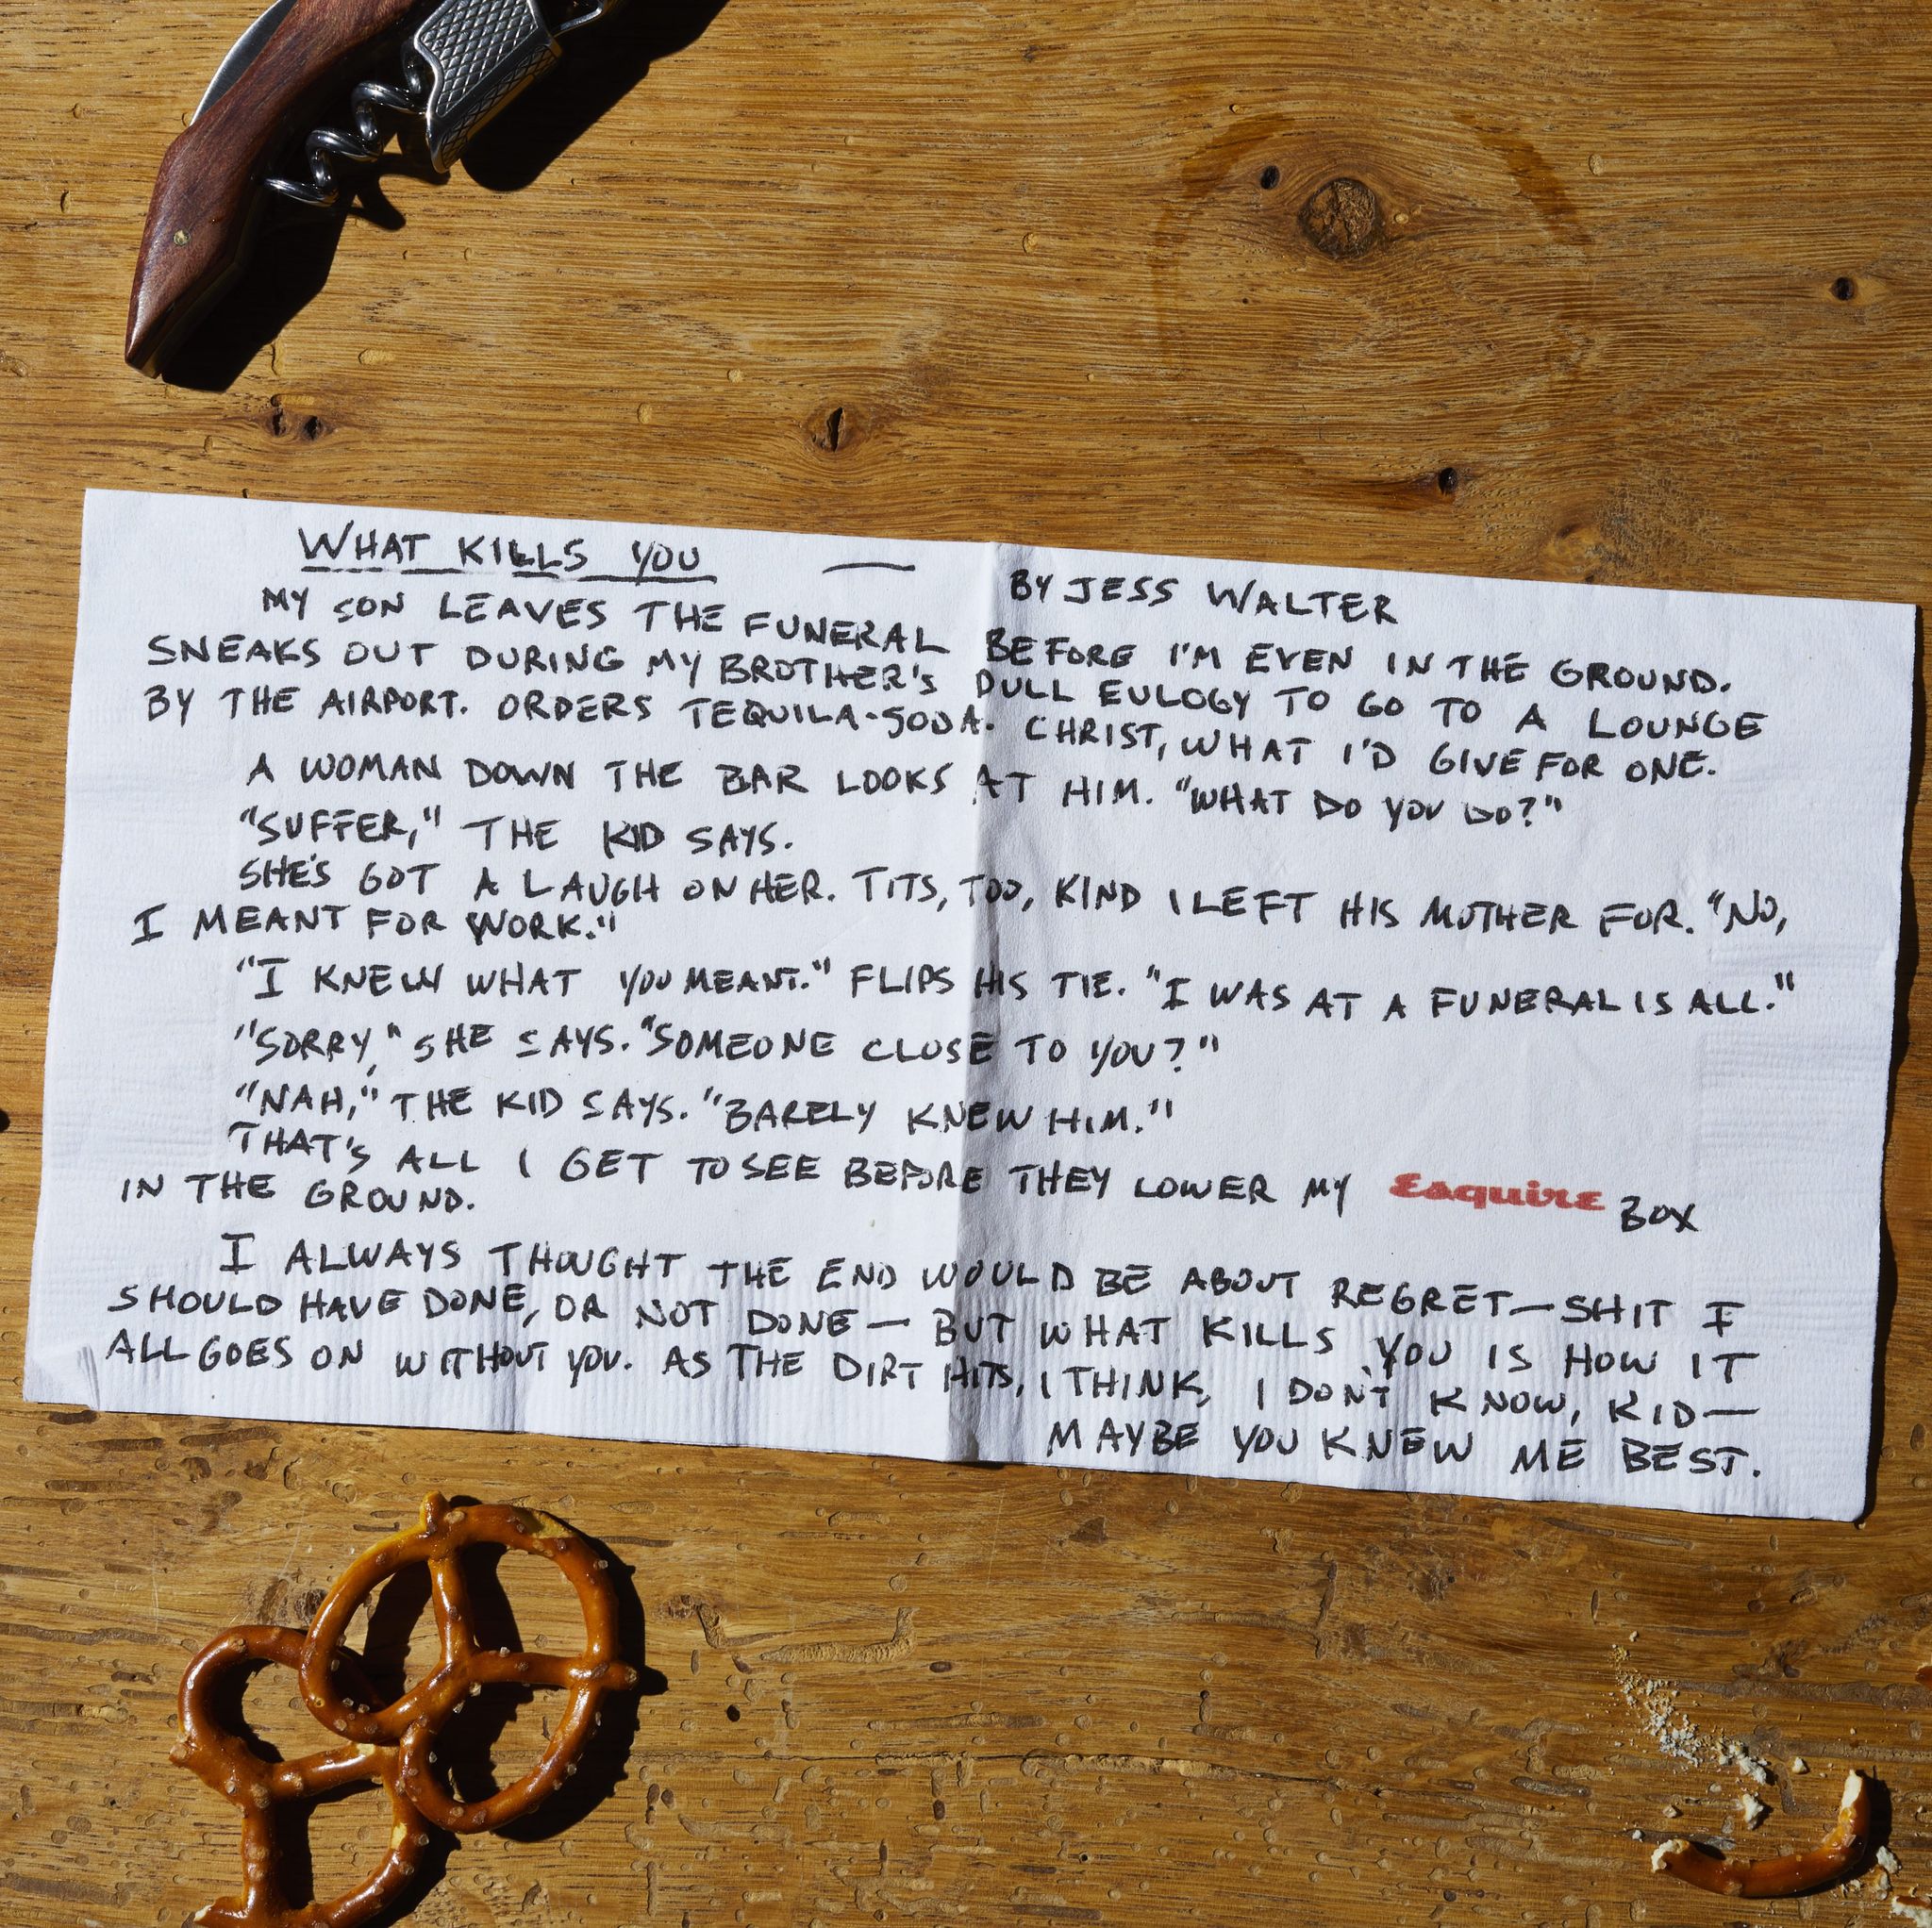 WHAT KILLS YOU — BY JESS WALTER
MY SON LEAVES THE FUNERAL BEFORE I'M EVEN IN THE GROUND.
SNEAKS OUT DURING MY BROTHER'S DULL EULOGY TO GO TO A LOUNGE
BY THE AIRPORT. ORDERS TEQUILA-SODA. CHRIST, WHAT I'D GIVE FOR ONE.
A WOMAN DOWN THE BAR LOOKS AT HIM. "WHAT DO YOU DO?"
"SUFFER," THE KID SAYS.
SHE'S GOT A LAUGH ON HER. TITS, TOO, KIND I LEFT HIS MOTHER FOR. "NO,
I MEANT FOR WORK."
"I KNEW WHAT YOU MEANT." FLIPS HIS TIE. "I WAS AT A FUNERAL IS ALL."
"SORRY," SHE SAYS. "SOMEONE CLOSE TO YOU?"
"NAH," THE KID SAYS. "BARELY KNEW HIM."
THAT'S ALL I GET TO SEE BEFORE THEY LOWER MY Esquire BOX
IN THE GROUND.
I ALWAYS THOUGHT THE END WOULD BE ABOUT REGRET—SHIT I
SHOULD HAVE DONE, OR NOT DONE—BUT WHAT KILLS YOU IS HOW IT
ALL GOES ON WITHOUT YOU. AS THE DIRT HITS, I THINK, I DON'T KNOW, KID—
MAYBE YOU KNEW ME BEST.